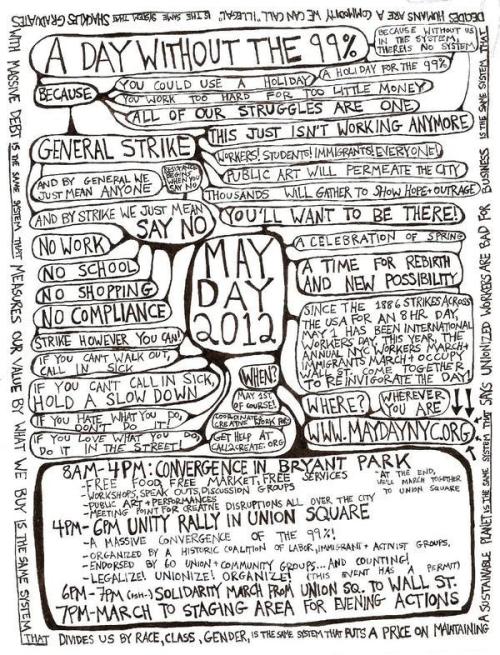 A DAY WITHOUT THE 99%
BECAUSE WITHOUT US
IN THE SYSTEM,
THERE IS NO SYSTEM
BECAUSE
YOU COULD USE A HOLIDAY
A HOLIDAY FOR THE 99%
YOU WORK TOO HARD FOR TOO LITTLE MONEY
ALL OF OUR STRUGGLES ARE ONE
THIS JUST ISN'T WORKING ANYMORE
GENERAL STRIKE
WORKERS! STUDENTS! IMMIGRANTS! EVERYONE!
PUBLIC ART WILL PERMEATE THE CITY
AND BY GENERAL WE
JUST MEAN ANYONE
RESISTANCE
BEGINS
WHEN YOU
SAY NO
THOUSANDS WILL GATHER TO SHOW HOPE + OUTRAGE
AND BY STRIKE WE JUST MEAN
SAY NO
YOU'LL WANT TO BE THERE!
NO WORK
NO SCHOOL
NO SHOPPING
NO COMPLIANCE
STRIKE HOWEVER YOU CAN!
IF YOU CAN'T WALK OUT,
CALL IN SICK
IF YOU CAN'T CALL IN SICK,
HOLD A SLOW DOWN
IF YOU HATE WHAT YOU DO,
DON'T DO IT!
IF YOU LOVE WHAT YOU DO,
DO IT IN THE STREET!
MAY
DAY
2012
A CELEBRATION OF SPRING
A TIME FOR REBIRTH
AND NEW POSSIBILITY
SINCE THE 1886 STRIKES ACROSS
THE USA FOR AN 8 HR DAY,
MAY 1 HAS BEEN INTERNATIONAL
WORKERS DAY. THIS YEAR, THE
ANNUAL NYC WORKERS MARCH +
IMMIGRANTS MARCH + OCCUPY
WALL ST. COME TOGETHER
TO REINVIGORATE THE DAY!
WHEN?
MAY 1ST
OF COURSE!
CREATIVE WORK FOR
GET HELP AT
CALL2CREATE.ORG
WHERE?
WHEREVER
YOU ARE
WWW.MAYDAYNYC.ORG
8AM-4PM: CONVERGENCE IN BRYANT PARK
-FREE FOOD, FREE MARKET, FREE SERVICES
-WORKSHOPS, SPEAK OUTS, DISCUSSION GROUPS
-PUBLIC ART + PERFORMANCES
-MEETING POINT FOR CREATIVE DISRUPTIONS ALL OVER THE CITY
-AT THE END,
WE'LL MARCH TOGETHER
TO UNION SQUARE
4PM-6PM UNITY RALLY IN UNION SQUARE
-A MASSIVE CONVERGENCE OF THE 99%!
-ORGANIZED BY A HISTORIC COALITION OF LABOR, IMMIGRANT + ACTIVIST GROUPS,
-ENDORSED BY 60 UNION + COMMUNITY GROUPS... AND COUNTING!
-LEGALIZE! UNIONIZE! ORGANIZE! (THIS EVENT HAS A PERMIT)
6PM-7PM (ISH-) SOLIDARITY MARCH FROM UNION SQ. TO WALL ST.
7PM-MARCH TO STAGING AREA FOR EVENING ACTIONS
THAT DIVIDES US BY RACE, CLASS, GENDER, IS THE SAME SYSTEM THAT PUTS A PRICE ON MAINTAINING
A SUSTAINABLE PLANET IS THE SAME SYSTEM THAT SAYS UNIONIZED WORKERS ARE BAD FOR BUSINESS IS THE SAME SYSTEM THAT
DECIDES HUMANS ARE A COMMODITY WE CAN CALL "ILLEGAL" IS THE SAME SYSTEM THAT SHACKLES GRADUATES
WITH MASSIVE DEBT IS THE SAME SYSTEM THAT MEASURES OUR VALUE BY WHAT WE BUY IS THE SAME SYSTEM